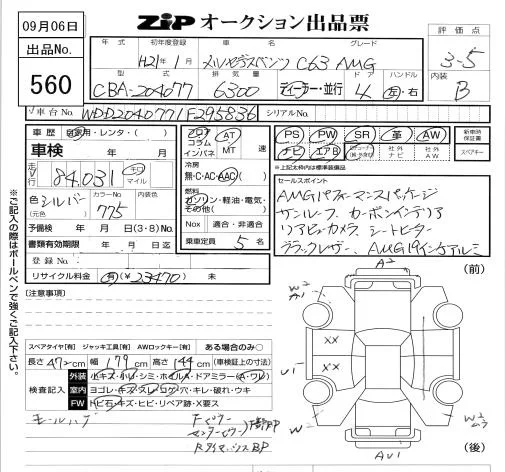 09月06日
ZIP オークション出品票
出品No.
560
評価点
3.5
内装
B
年式 初年度登録 車名 グレード
H21年1月 メルセデスベンツ C63 AMG
型式 排気量 ドア ハンドル
CBA-204077 6300 ディーラー・並行 4 左・右
車台No. WDD2040771F295836 シリアルNo.
車歴 自家用・レンタ・( )
車検 年 月
走行 84,031 キロ マイル
色 シルバー カラーNo. 775 内装色
(元色)
予備検 年 月 日(3・8)No.
書類有効期限 年 月 日迄
登録No.
リサイクル料金 有(¥23470) 未
フロア コラム インパネ
AT MT 速
冷房
無・C・AC・AAC( )
燃料
ガソリン・軽油・電気・その他( )
Nox 適合・非適合
乗車定員 5 名
PS PW SR 革 AW
ナビ エアB
社外ナビ 社外AW
新車時保証書
スペアキー
※上記太枠内は標準装備品
セールスポイント
AMGパフォーマンスパッケージ
サンルーフ カーボンインテリア
リアビューカメラ シートヒーター
ブラックレザー、AMG19インチアルミ
※ご記入の際はボールペンで強くご記入下さい。
[注意事項]
スペアタイヤ[有] ジャッキ工具[有] AWロックキー[有] ある場合のみ○
長さ 472 cm 幅 179 cm 高さ 144 cm (車検証上の寸法)
検査記入
外装 小キズ・小凹・シミ・ホイルA・ドアミラー(A・ワレ)
室内 ヨゴレ・キズ・スレ・コゲ・穴・キレ・破れ・ウキ
FW トビ石・キズ・ヒビ・リペア跡・X要ス
モールハゲ
(前)
A2
W2
A1
U1
XX
XX
W2
W2
AU1
(後)